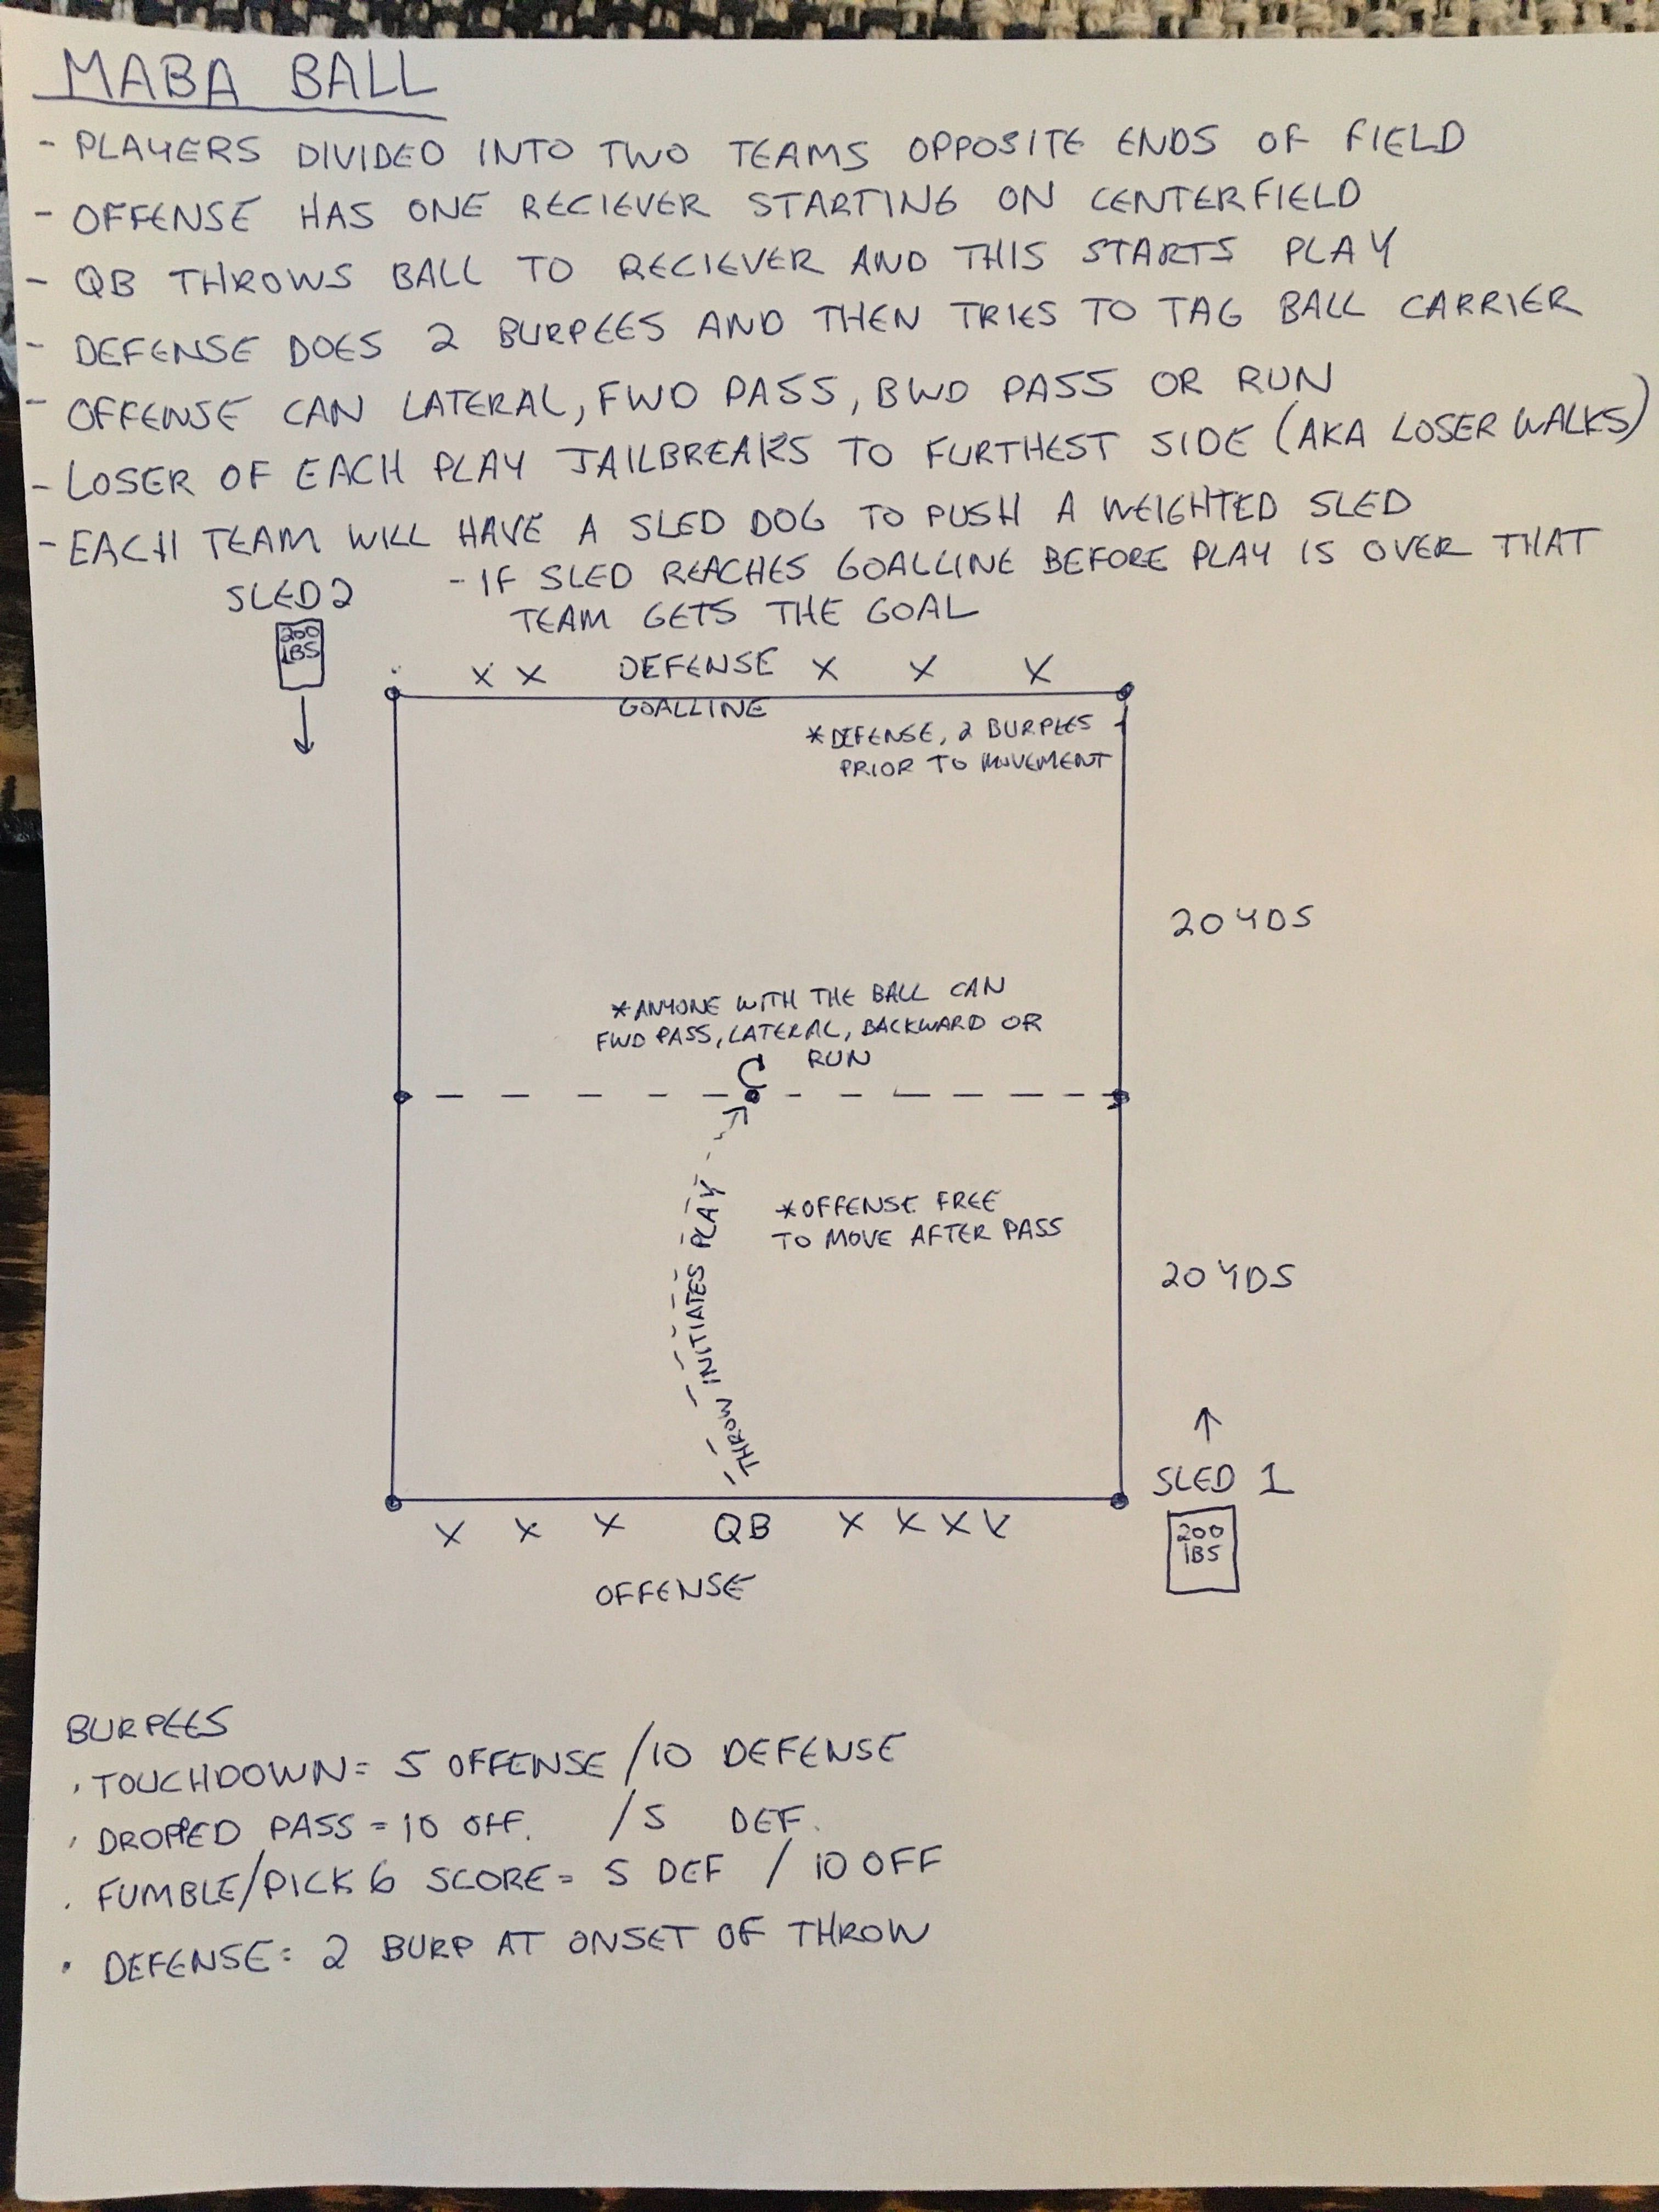 MABA BALL
- PLAYERS DIVIDED INTO TWO TEAMS OPPOSITE ENDS OF FIELD
- OFFENSE HAS ONE RECIEVER STARTING ON CENTERFIELD
- QB THROWS BALL TO RECIEVER AND THIS STARTS PLAY
- DEFENSE DOES 2 BURPEES AND THEN TRIES TO TAG BALL CARRIER
- OFFENSE CAN LATERAL, FWD PASS, BWD PASS OR RUN
- LOSER OF EACH PLAY JAILBREAKS TO FURTHEST SIDE (AKA LOSER WALKS)
- EACH TEAM WILL HAVE A SLED DOG TO PUSH A WEIGHTED SLED
- IF SLED REACHES GOALLINE BEFORE PLAY IS OVER THAT
TEAM GETS THE GOAL
SLED 2
200
LBS
X X DEFENSE X X X
GOALLINE
*DEFENSE, 2 BURPEES
PRIOR TO MOVEMENT
20 YDS
*ANYONE WITH THE BALL CAN
FWD PASS, LATERAL, BACKWARD OR
RUN
C
THROW INITIATES PLAY
*OFFENSE FREE
TO MOVE AFTER PASS
20 YDS
SLED 1
200
LBS
X X X QB X X X X
OFFENSE
BURPEES
· TOUCHDOWN = 5 OFFENSE / 10 DEFENSE
· DROPPED PASS = 10 OFF. / 5 DEF.
· FUMBLE/PICK 6 SCORE = 5 DEF / 10 OFF
· DEFENSE: 2 BURP AT ONSET OF THROW